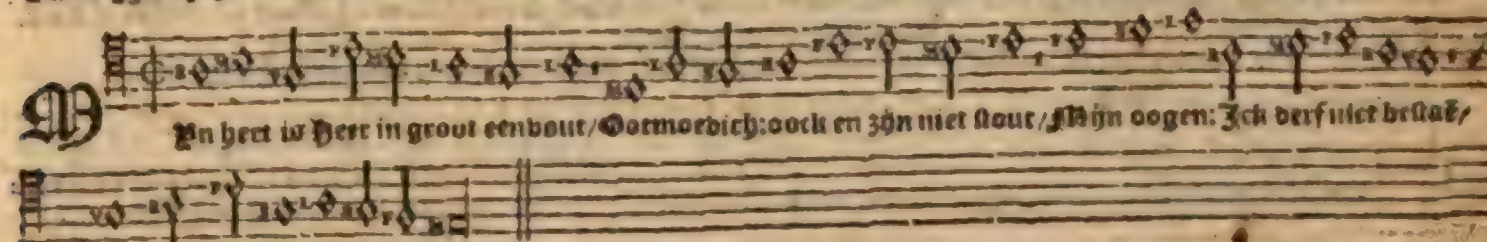 MYn hert is Heer in groot eenvout/Ootmoedich:oock en zijn niet stout/Mijn oogen: Ick derf niet bestaẽ/